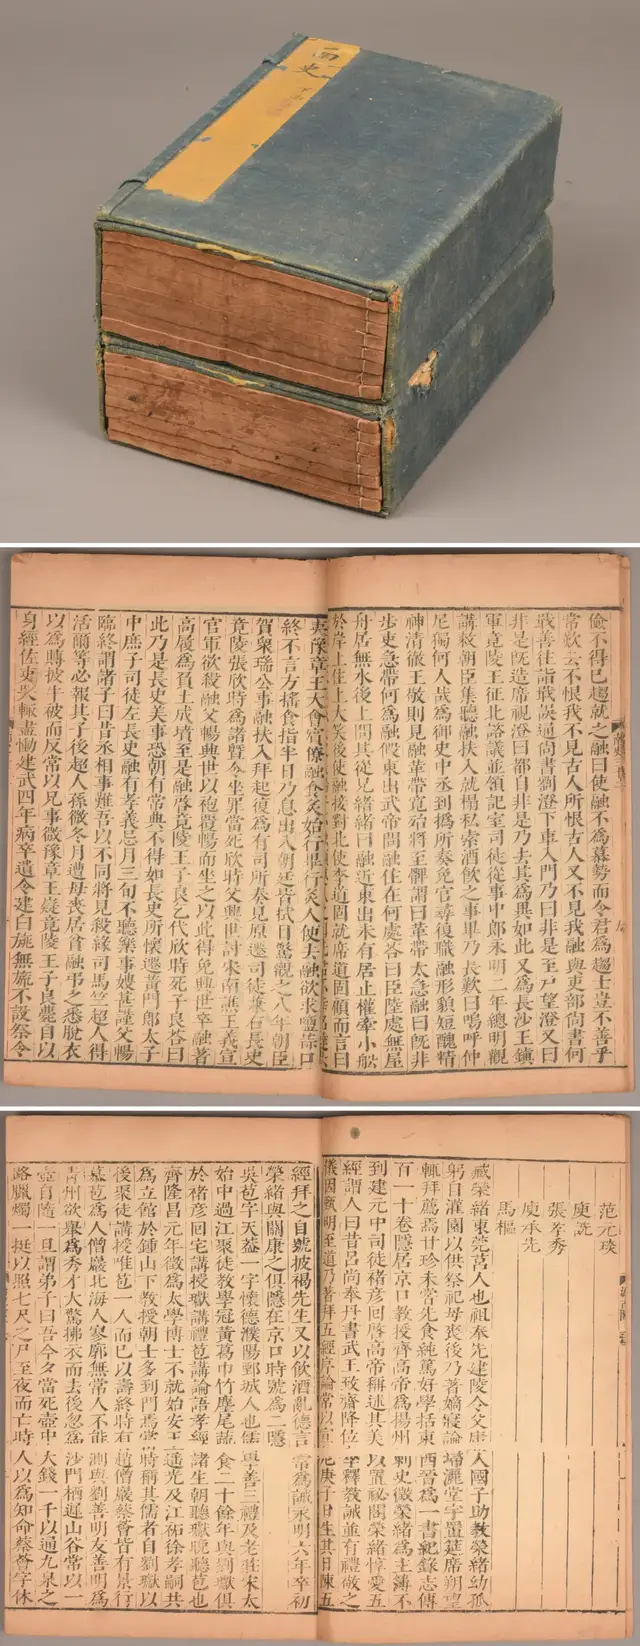 南史
儉不得已趨就之融曰使融不為慕勢而令君為趨士豈不善乎
常歎云不恨我不見古人所恨古人又不見我融與吏部尚書何
戢善往詣戢誤通尚書劉澄下車入門乃曰非是至戶望澄又曰
非是既造席視澄曰都自非是乃去其為異如此又為長沙王鎮
軍竟陵王征北諮議並領記室司徒從事中郎永明二年總明觀
講敕朝臣集聽融扶入就榻私索酒飲之事畢乃長歎曰嗚呼仲
尼獨何人哉為御史中丞到撝所奏免官尋復職融形貌短醜精
神清徹王敬則見融革帶寬殆將至髀謂曰革帶太急融曰既非
步吏急帶何為融假東出武帝問融住在何處答曰臣陸處無屋
舟居無水後上問其從兄緒緒曰融近東出未有居止權牽小船
於岸上住上大笑後使融接對北使李道固就席道固顧而言曰
夷豫章王大會賓僚融食炙始行畢行炙人便去融欲求鹽蒜口
終不言方搖食指半日乃息出入朝廷皆拭目驚觀之八年朝臣
賀眾瑞公事融扶入拜起復為有司所奏見原遷司徒兼右長史
竟陵張欣時為諸暨令坐罪當死欣時父興世討宋南譙王義宣
官軍欲殺融父暢興世以袍覆暢而坐之以此得免興世卒融著
高履為負土成墳至是融啟竟陵王子良乞代欣時死子良答曰
此乃是長史美事恐朝有常典不得如長史所懷遷黃門郎太子
中庶子司徒左長史融有孝義忌月三旬不聽樂事嫂甚謹父暢
臨終謂諸子曰昔丞相事難吾以不同將見殺緣司馬竺超人得
活爾等必報其子後超人孫微冬月遭母喪居貧融弔之悉脫衣
以為賻披牛被而反常以兄事微豫章王嶷竟陵王子良薨自以
身經佐吏哭輒盡慟建武四年病卒遺令建白旐無旒不設祭令
范元琰
庾詵
張孝秀
庾承先
馬樞
臧榮緒東莞莒人也祖奉先建陵令父庸人國子助教榮緒幼孤
躬自灌園以供祭祀母喪後乃著嫡寢論掃灑堂宇置筵席朔望
輒拜薦焉甘珍未嘗先食純篤好學括東西晉為一書紀錄志傳
百一十卷隱居京口教授齊高帝為揚州刺史徵榮緒為主簿不
到建元中司徒褚彥回啟高帝稱述其美以置祕閣榮緒惇愛五
經謂人曰昔呂尚奉丹書武王致齋降位李釋教誡並有禮敬之
儀因甄明至道乃著拜五經序論常以宣尼庚子日生其日陳五
經拜之自號披褐先生又以飲酒亂德言常為誡永明六年卒初
榮緒與關康之俱隱在京口時號為二隱
吳苞字天蓋一字懷德濮陽鄄城人也儒學善三禮及老莊宋太
始中過江聚徒教學冠黃葛巾竹麈尾蔬食二十餘年與劉瓛俱
於褚彥回宅講授瓛講禮苞講論語孝經諸生朝聽瓛晚聽苞也
齊隆昌元年徵為太學博士不就始安王遙光及江祏徐孝嗣共
為立館於鍾山下教授朝士多到門焉當時稱其儒者自劉瓛以
後聚徒講授唯苞一人而已以壽終時有趙僧巖蔡薈皆有景行
慕苞為人僧巖北海人寥廓無常人不能測與劉善明友善明為
青州欲舉為秀才大驚拂衣而去後忽為沙門栖遲山谷常以一
壺自隨一旦謂弟子曰吾今夕當死壺中大錢一千以通九泉之
路蠟燭一挺以照七尺之尸至夜而亡時人以為知命蔡薈字休